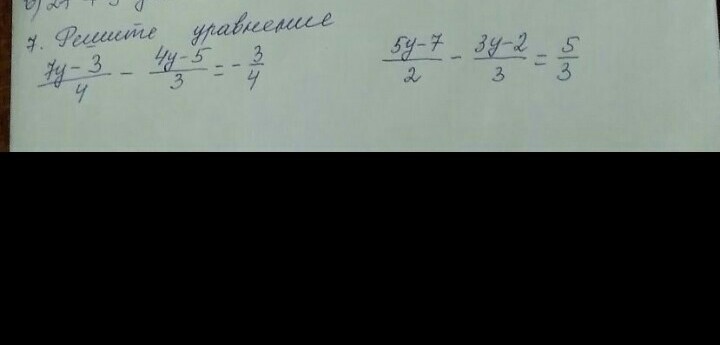 7. Решите уравнение
(7y-3)/4 - (4y-5)/3 = -3/4
(5y-7)/2 - (3y-2)/3 = 5/3